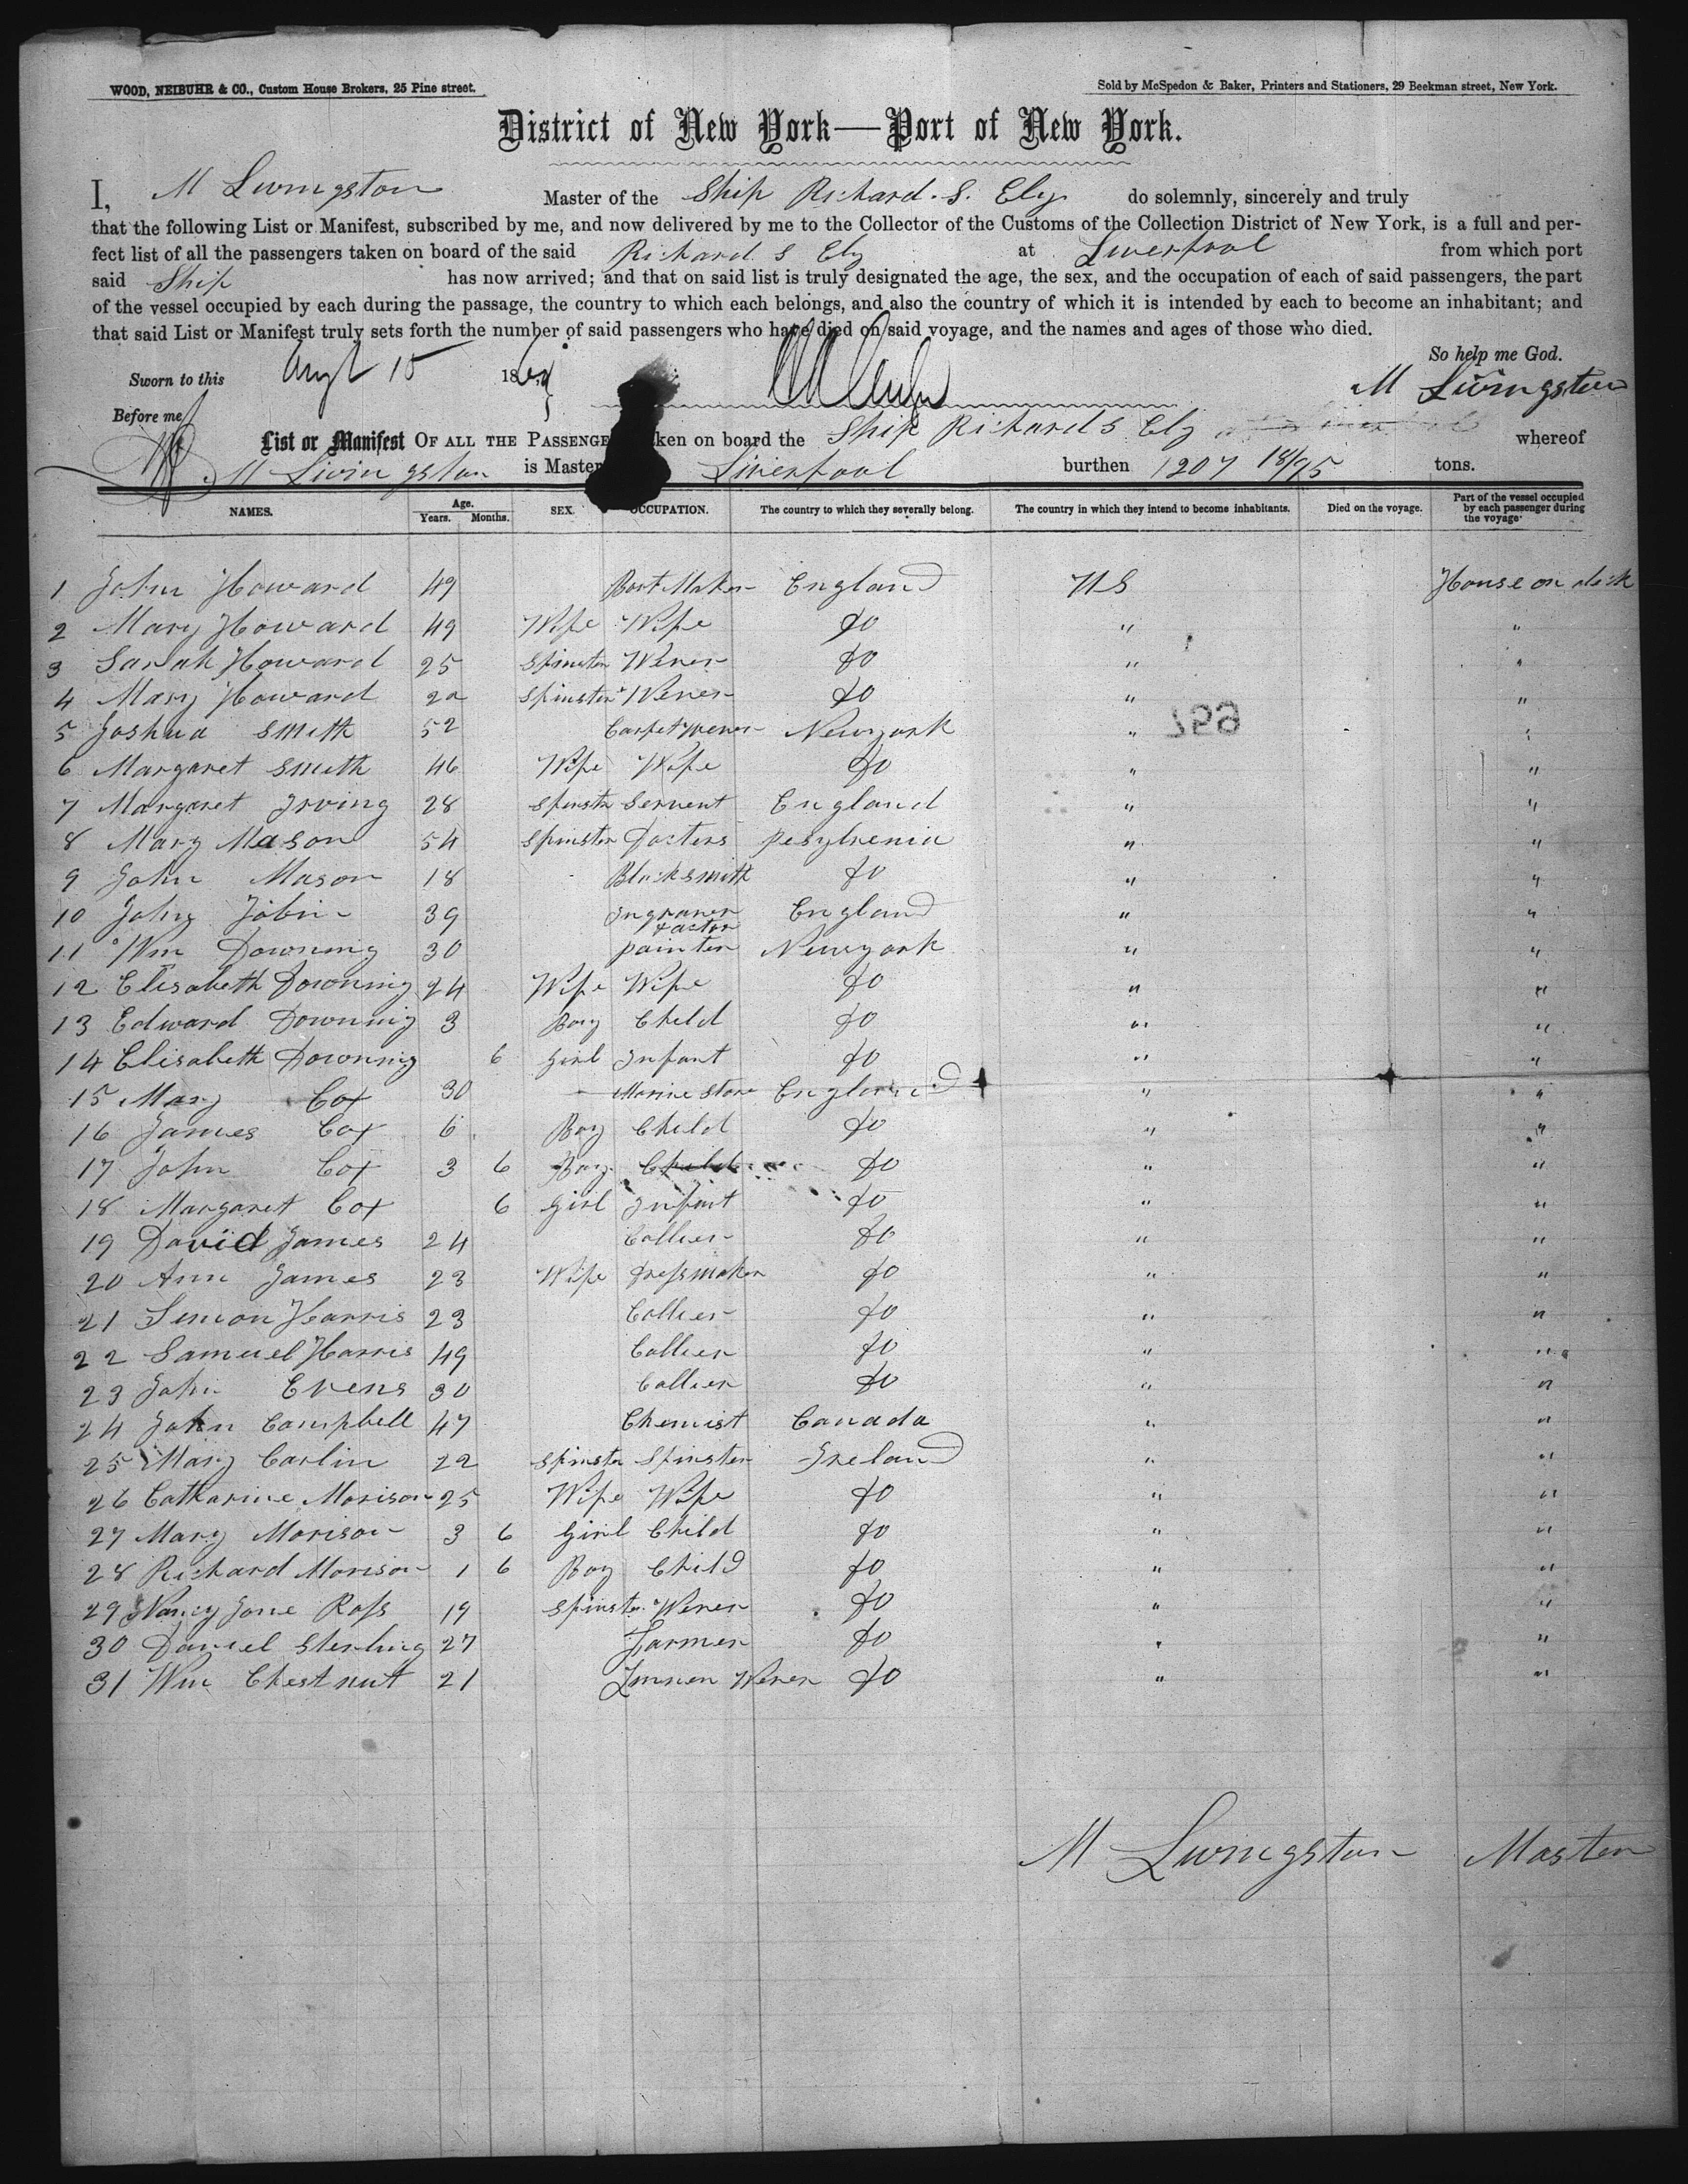 WOOD, NEIBUHR & CO., Custom House Brokers, 25 Pine street.
Sold by McSpedon & Baker, Printers and Stationers, 29 Beekman street, New York.
District of New York—Port of New York.
I, M Livingston Master of the Ship Richard. S. Ely do solemnly, sincerely and truly
that the following List or Manifest, subscribed by me, and now delivered by me to the Collector of the Customs of the Collection District of New York, is a full and per-
fect list of all the passengers taken on board of the said Richard S Ely at Liverpool from which port
said Ship has now arrived; and that on said list is truly designated the age, the sex, and the occupation of each of said passengers, the part
of the vessel occupied by each during the passage, the country to which each belongs, and also the country of which it is intended by each to become an inhabitant; and
that said List or Manifest truly sets forth the number of said passengers who have died on said voyage, and the names and ages of those who died.
So help me God.
Sworn to this Augt 15 18
M Livingston
Before me
List or Manifest OF ALL THE PASSENGE ken on board the Ship Richard S Ely whereof
M Livingston is Master Liverpool burthen 1207 18/95 tons.
NAMES. Age. Years. Months. SEX. OCCUPATION. The country to which they severally belong. The country in which they intend to become inhabitants. Died on the voyage. Part of the vessel occupied by each passenger during the voyage.
1 John Howard 49 Boot Maker England US House on deck
2 Mary Howard 49 Wife Wife Do " "
3 Sarah Howard 25 Spinster Wever Do " "
4 Mary Howard 22 Spinster Wever Do " "
5 Joshua Smith 52 Carpet Wever Newyork " "
6 Margaret Smith 46 Wife Wife Do " "
7 Margaret Irving 28 Spinstr Servent England " "
8 Mary Mason 54 Spinster Docters Pesylvenia " "
9 John Mason 18 Blacksmith Do " "
10 John Tobin 39 Ingraver England " "
11 Wm Downing 30 painter Newyork " "
12 Elisabeth Downing 24 Wife Wife Do " "
13 Edward Downing 3 Boy Child Do " "
14 Elisabeth Downing 6 Girl Infant Do " "
15 Mary Cox 30 Marine Store England " "
16 James Cox 6 Boy Child Do " "
17 John Cox 3 6 Boy Child Do " "
18 Margaret Cox 6 Girl Infant Do " "
19 David James 24 Collier Do " "
20 Ann James 23 Wife Dressmaker Do " "
21 Simon Harris 23 Collier Do " "
22 Samuel Harris 49 Collier Do " "
23 John Evens 30 Collier Do " "
24 John Campbell 47 Chemist Canada " "
25 Mary Carlin 22 Spinster Spinster Ireland " "
26 Catharine Morison 25 Wife Wife Do " "
27 Mary Morison 3 6 Girl Child Do " "
28 Richard Morison 1 6 Boy Child Do " "
29 Nancy Jane Ross 19 Spinster Wever Do " "
30 Daniel Sterling 27 Farmer Do " "
31 Wm Chestnut 21 Linnen Wever Do " "
M Livingston Master